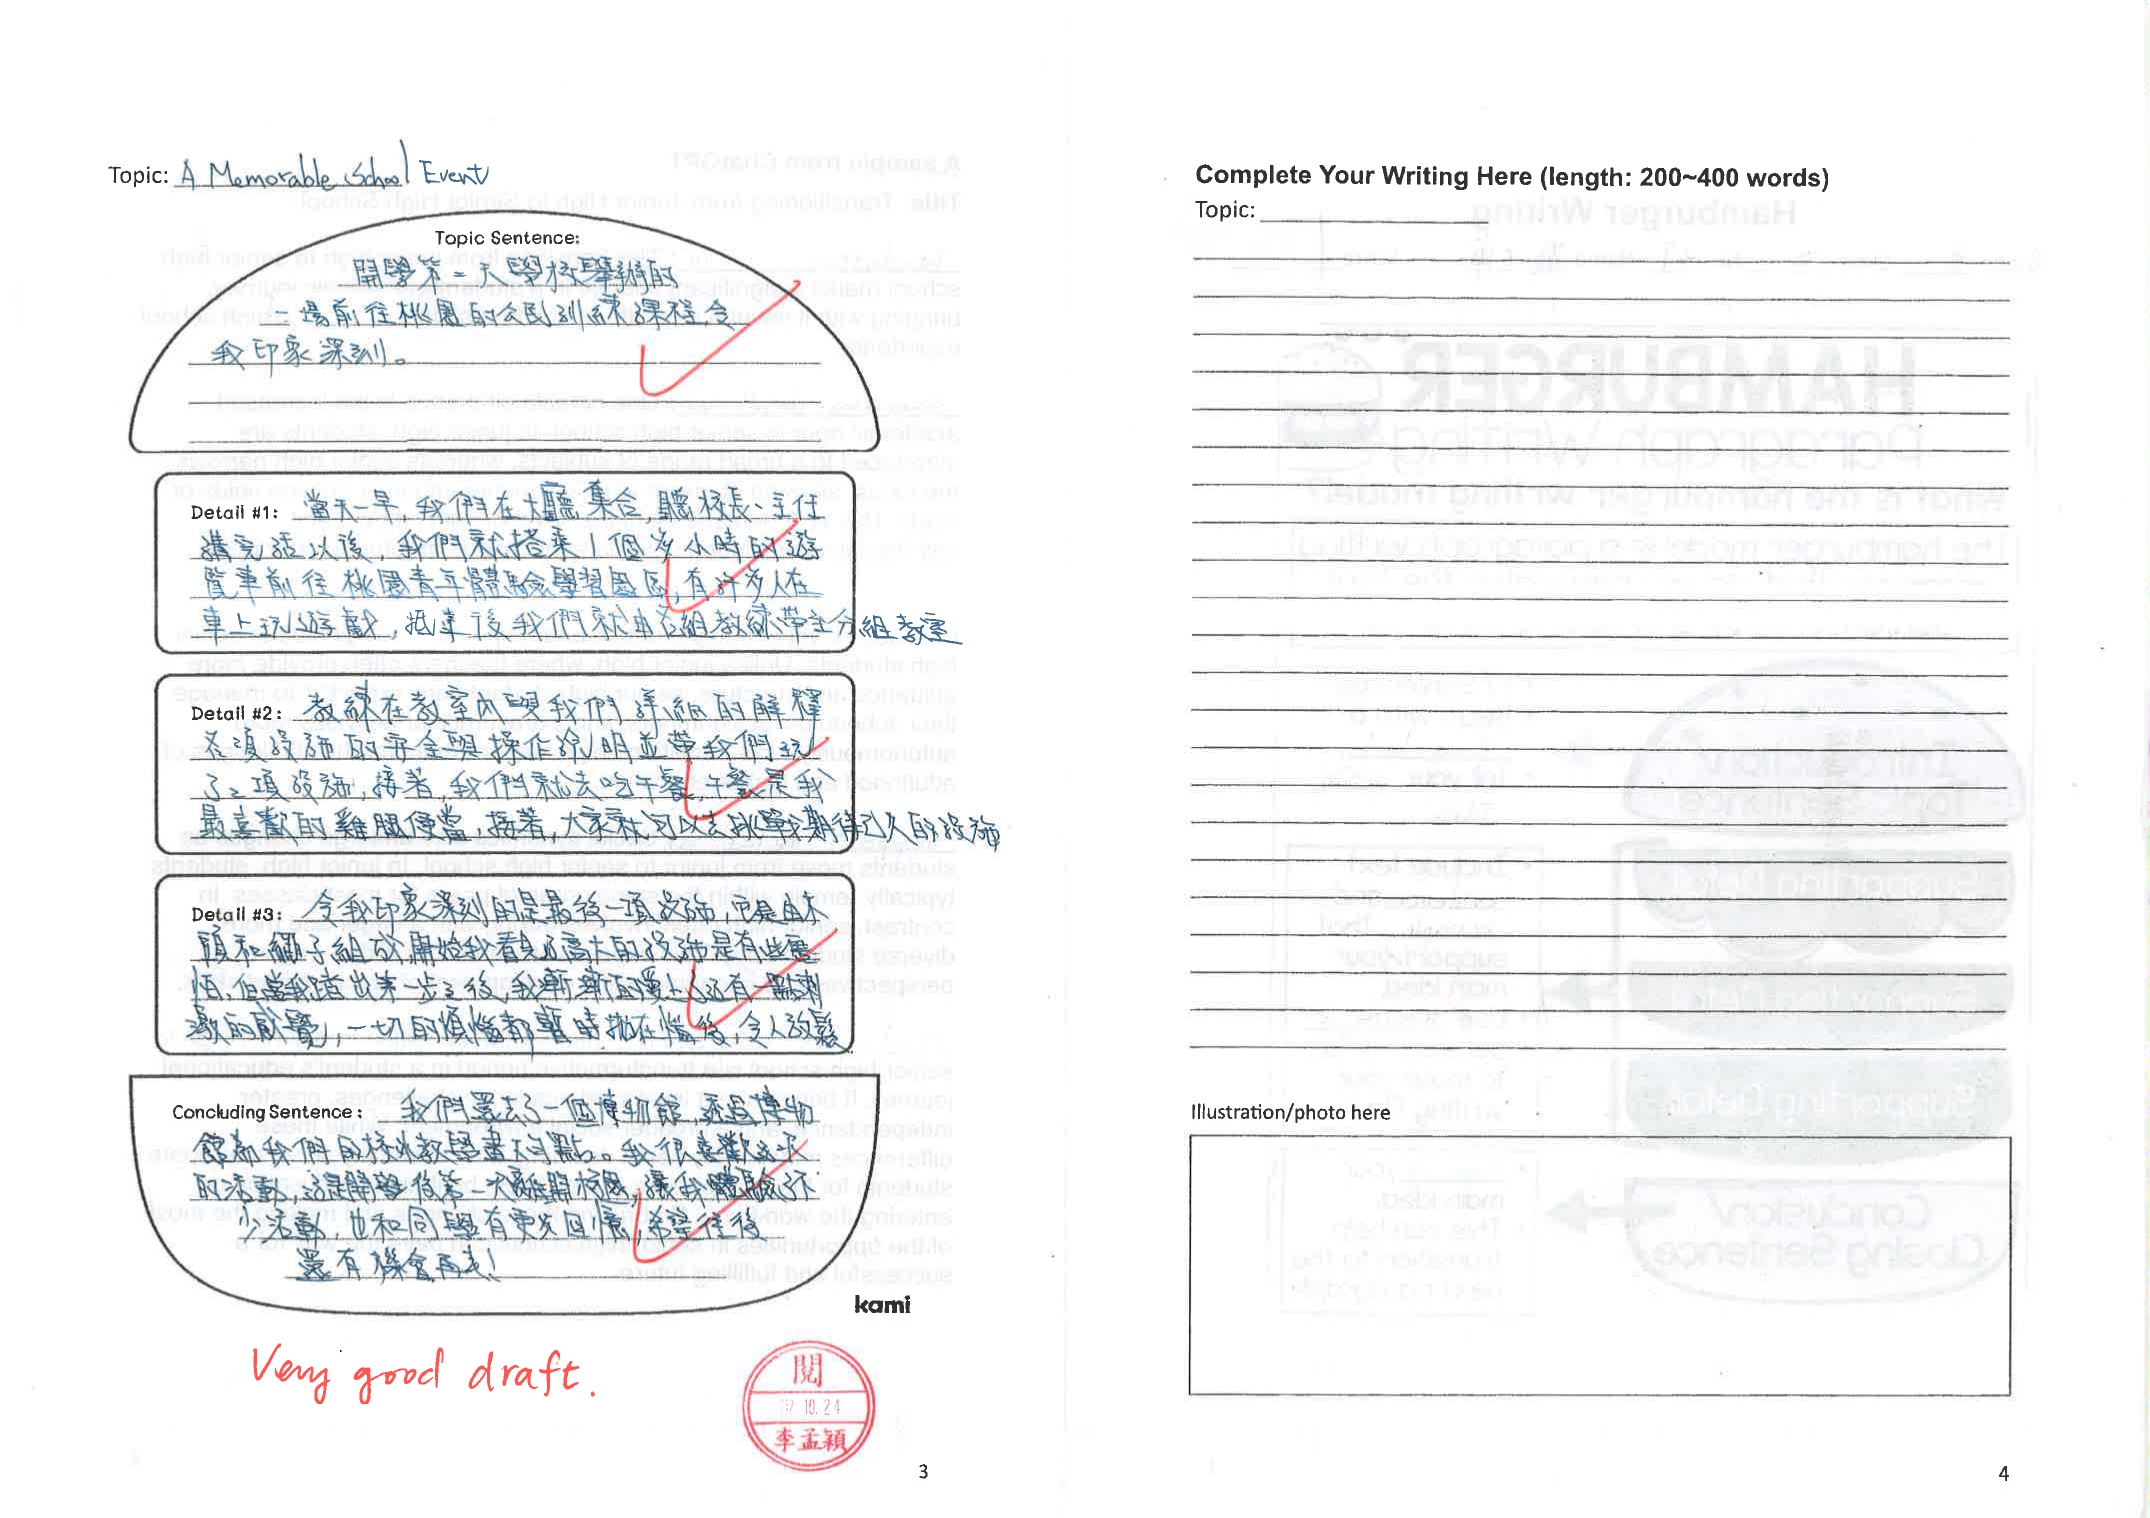 Topic: A Memorable School Event
Topic Sentence:
開學第二天學校舉辦的
一場前往桃園的公民訓練課程,令
我印象深刻。
Detail #1: 當天一早,我們在大廳集合,聽校長、主任
講完話以後,我們就搭乘1個多小時的遊
覽車前往桃園青年體驗學習園區,有許多人在
車上玩遊戲,抵達後我們就由各組教練帶至分組教室
Detail #2: 教練在教室內與我們詳細的解釋
各項設施的安全與操作說明並帶我們玩
了2項設施,接著,我們就去吃午餐,午餐是我
最喜歡的雞腿便當,接著,大家就可以去挑戰期待已久的設施
Detail #3: 令我印象深刻的是最後一項設施,它是由木
頭和繩子組成,開始我看見高大的設施是有些害
怕,但當我踏出第一步之後,我漸漸的愛上還有一點刺
激的感覺,一切的煩惱都暫時拋在腦後,令人放鬆
Concluding Sentence: 我們還去了一個博物館,
館為我們的校外教學畫下句點。我很喜歡這次
的活動,這是開學後第一次離開校園,讓我體驗了不
少活動,也和同學有更多回憶,希望往後
還有機會再去!
kami
Very good draft.
閱
10.24
李孟穎
3
Complete Your Writing Here (length: 200~400 words)
Topic:
Illustration/photo here
4